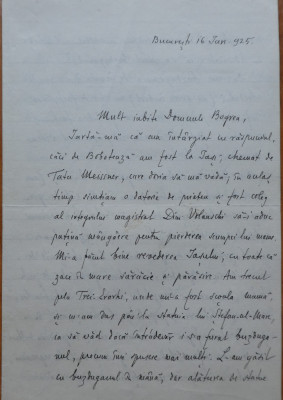 București 16 Ian. 925.
Mult iubite Domnule Bogrea,
Iartă-mă că am întârziat cu răspunsul,
căci de Bobotează am fost la Iași, chemat de
Tatu Meissner, care dorea să mă vadă; în acelaș
timp simțiam o datorie de prieten și fost coleg
al integrului magistrat Din Volanschi să-i aduc
puțină mângâere pentru pierderea scumpei lui mame
Mi-a făcut bine revederea Iașului, cu toate că
zace în mare sărăcie și părăsire. Am trecut
pela Trei Erarhi, unde mi-a fost școala mumă,
și m'am dus până la statua lui Ștefan-cel-Mare,
ca să văd dacă întradevăr i s'a furat buzduga-
nul, precum îmi spusese mai mulți. L-am găsit
cu buzduganul în mână, dar alăturea de statue